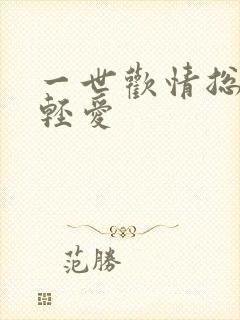 一世歡情总
輕愛
范勝